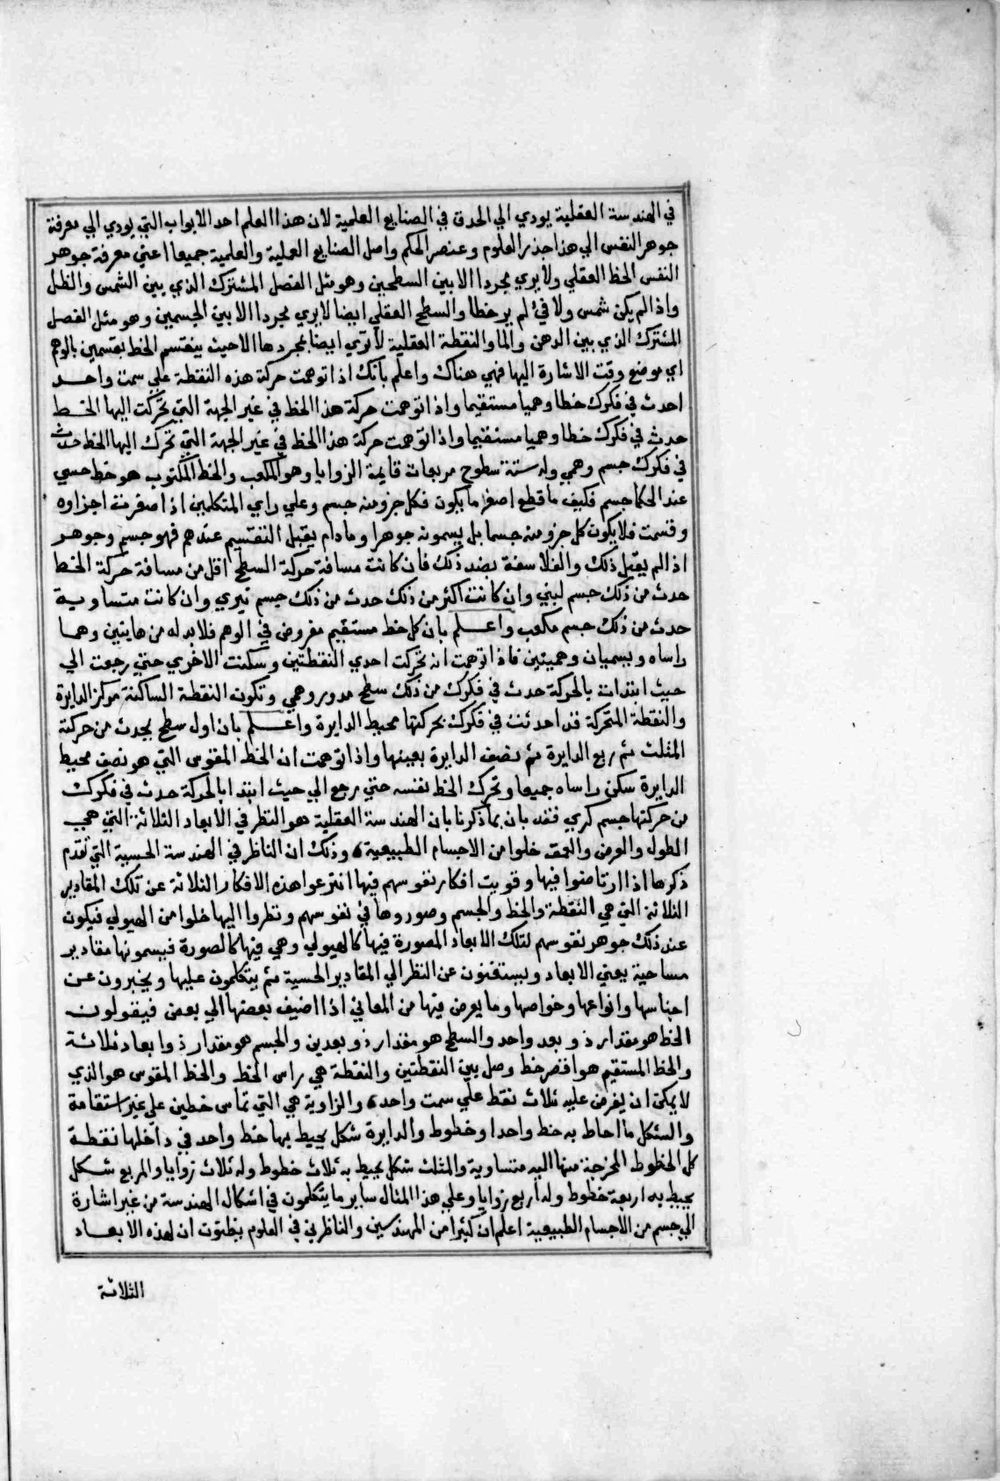 في الهندسة العقلية يودي الي الحدق في الصنايع العلمية لان هذا العلم احد الابواب التي يودي الي معرفة
جوهر النفس الي هذا جذر العلوم وعنصر الحكم واصل الصنايع العملية والعلمية جميعا اعني معرفة جوهر
النفس الخظ العقلي ولا يري مجردا الا بين السطحين وهو مثل الفصل المشترك الذي بين الشمس والظل
واذ الم يكن شمس ولا في لم ير خطا والسطح العقلي ايضا لا يري مجردا الا بين الجسمين وهو مثل الفصل
المشترك الذي بين الدهن والما والنقطة العقلية لا تري ايضا بمجردها الا حيث ينقسم الخط بقسمين بالوهم
اي موضع وقت الاشارة اليها فهي هناك واعلم بانك اذا توهمت حركة هذه النقطة علي سمت واحد
احدث في فكرك خطا وهميا مستقيما واذا توهمت حركة هذا الخظ في غير الجهة التي تحركت اليها الخط
حدث في فكرك خطا وهميا مستقيما واذا توهمت حركة هذا الخظ في غير الجهة التي تحرك اليها الخط حدث
في فكرك جسم وهمي وله ستة سطوح مربعات قايمة الزوايا وهو المكعب والخظ المكتوب هو خط حسي
عند الحكما جسم فكيف ما قطع اصغر ما يكون فكل جزو منه جسم وعلي راي المتكلمين اذا صغرت اجزاوه
وقسمت فلا يكون كل جزو منه جسما بل يسمونه جوهرا وما دام يقبل التقسيم عندهم فهو جسم وجوهر
اذ الم يقبل ذلك والفلاسفة بضد ذلك فان كانت مسافة حركة السطح اقل من مسافة حركة الخط
حدث من ذلك جسم لبني وان كانت اكثر من ذلك حدث من ذلك جسم بيري وان كانت متساوية
حدث من ذلك جسم مكعب واعلم بان كل خط مستقيم مفروض في الوهم فلا بد له من هايتين وهما
راساه ويسميان وهميتين فاذا توهمت انه تحركت احدي النقطتين وسكنت الاخري حتي رجعت الي
حيث ابتدات بالحركة حدث في فكرك من ذلك سطح مدور وهمي وتكون النقطة الساكنة مركز الدايرة
والنقطة المتحركة قد احدثت في فكرك بحركتها محيط الدايرة واعلم بان اول سطح يحدث من حركته
المثلث ثم ربع الدايرة ثم نصف الدايرة بعينها واذا توهمت ان الخظ المقوس التي هو نصف محيط
الدايرة سكن راساه جميعا وتحرك الخظ نفسه حتي رجع الي حيث ابتدا بالحركة حدث في فكرك
من حركتها جسم كري فقد بان بما ذكرنا بان الهندسة العقلية هو النظر في الابعاد الثلاثة التي هي
الطول والعرض والعمق خلوا من الاجسام الطبيعية وذلك ان الناظر في الهندسة الحسية التي تقدم
ذكرها اذا ارتاضوا فيها وقويت افكار نفوسهم فيها انتزعوا هذه الافكار الثلاثة عن تلك المقادير
الثلاثة التي هي النقطة والخظ والجسم وصوروها في نفوسهم ونظروا اليها خلوا من الهيولي فيكون
عند ذلك جوهر نفوسهم لتلك الابعاد المصورة فيها كالهيولي وهي فيها كالصورة فيسمونها مقادير
مساحية يعني الابعاد ويستغنون عن النظر الي المقادير الحسية ثم يتكلمون عليها ويخبرون عن
اجناسها وانواعها وخواصها وما يعرض فيها من المعاني اذا اضيف بعضها الي بعض فيقولون
الخظ هو مقدار ذو بعد واحد والسطح هو مقدار ذو بعدين والجسم هو مقدار ذو ابعاد ثلاثة
والخط المستقيم هو اقصر خط وصل بين النقطتين والنقطة هي راس الخظ والخظ المقوس هو الذي
لا يمكن ان يفرض عليه ثلاث نقط علي سمت واحد والزاوية هي التي تماس خطين علي غير استقامة
والشكل ما احاط به خط واحد او خطوط والدايرة شكل يحيط بها خط واحد في داخلها نقطة
كل الخطوط المخرجة منها اليه متساوية والمثلث شكل يحيط به ثلاث خطوط وله ثلاث زوايا والمربع شكل
يحيط به اربعة خطوط وله اربع زوايا وعلي هذا المثال ساير ما يتكلمون في اشكال الهندسة من غير اشارة
الي جسم من الاجسام الطبيعية اعلم ان كثيرا من المهندسين والناظرين في العلوم يظنون ان لهذه الابعاد
الثلاثة